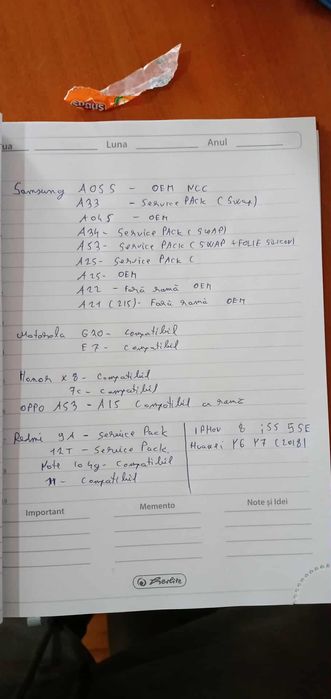 ua
Luna
Anul
Samsung A05S - OEM NCC
A33 - Service PACK (Swap)
A045 - OEM
A34 - Service PACK (SWAP)
A53 - Service PACK (SWAP + FOLIE SILICON)
A25 - Service PACK (
A25 - OEM
A22 - Fară ramă OEM
A21 (215) - Fară ramă OEM
Motorola G20 - Compatibil
E7 - Compatibil
Honor x8 - Compatibil
7c - Compatibil
OPPO A53 - A15 Compatibil cu ramă
Redmi 9A - Service Pack
12T - Service Pack
Note 10 4g - Compatibil
11 - Compatibil
8 5S 5SE
Huawei Y6 Y7 (2018)
Important
Memento
Note și Idei
Herlitz